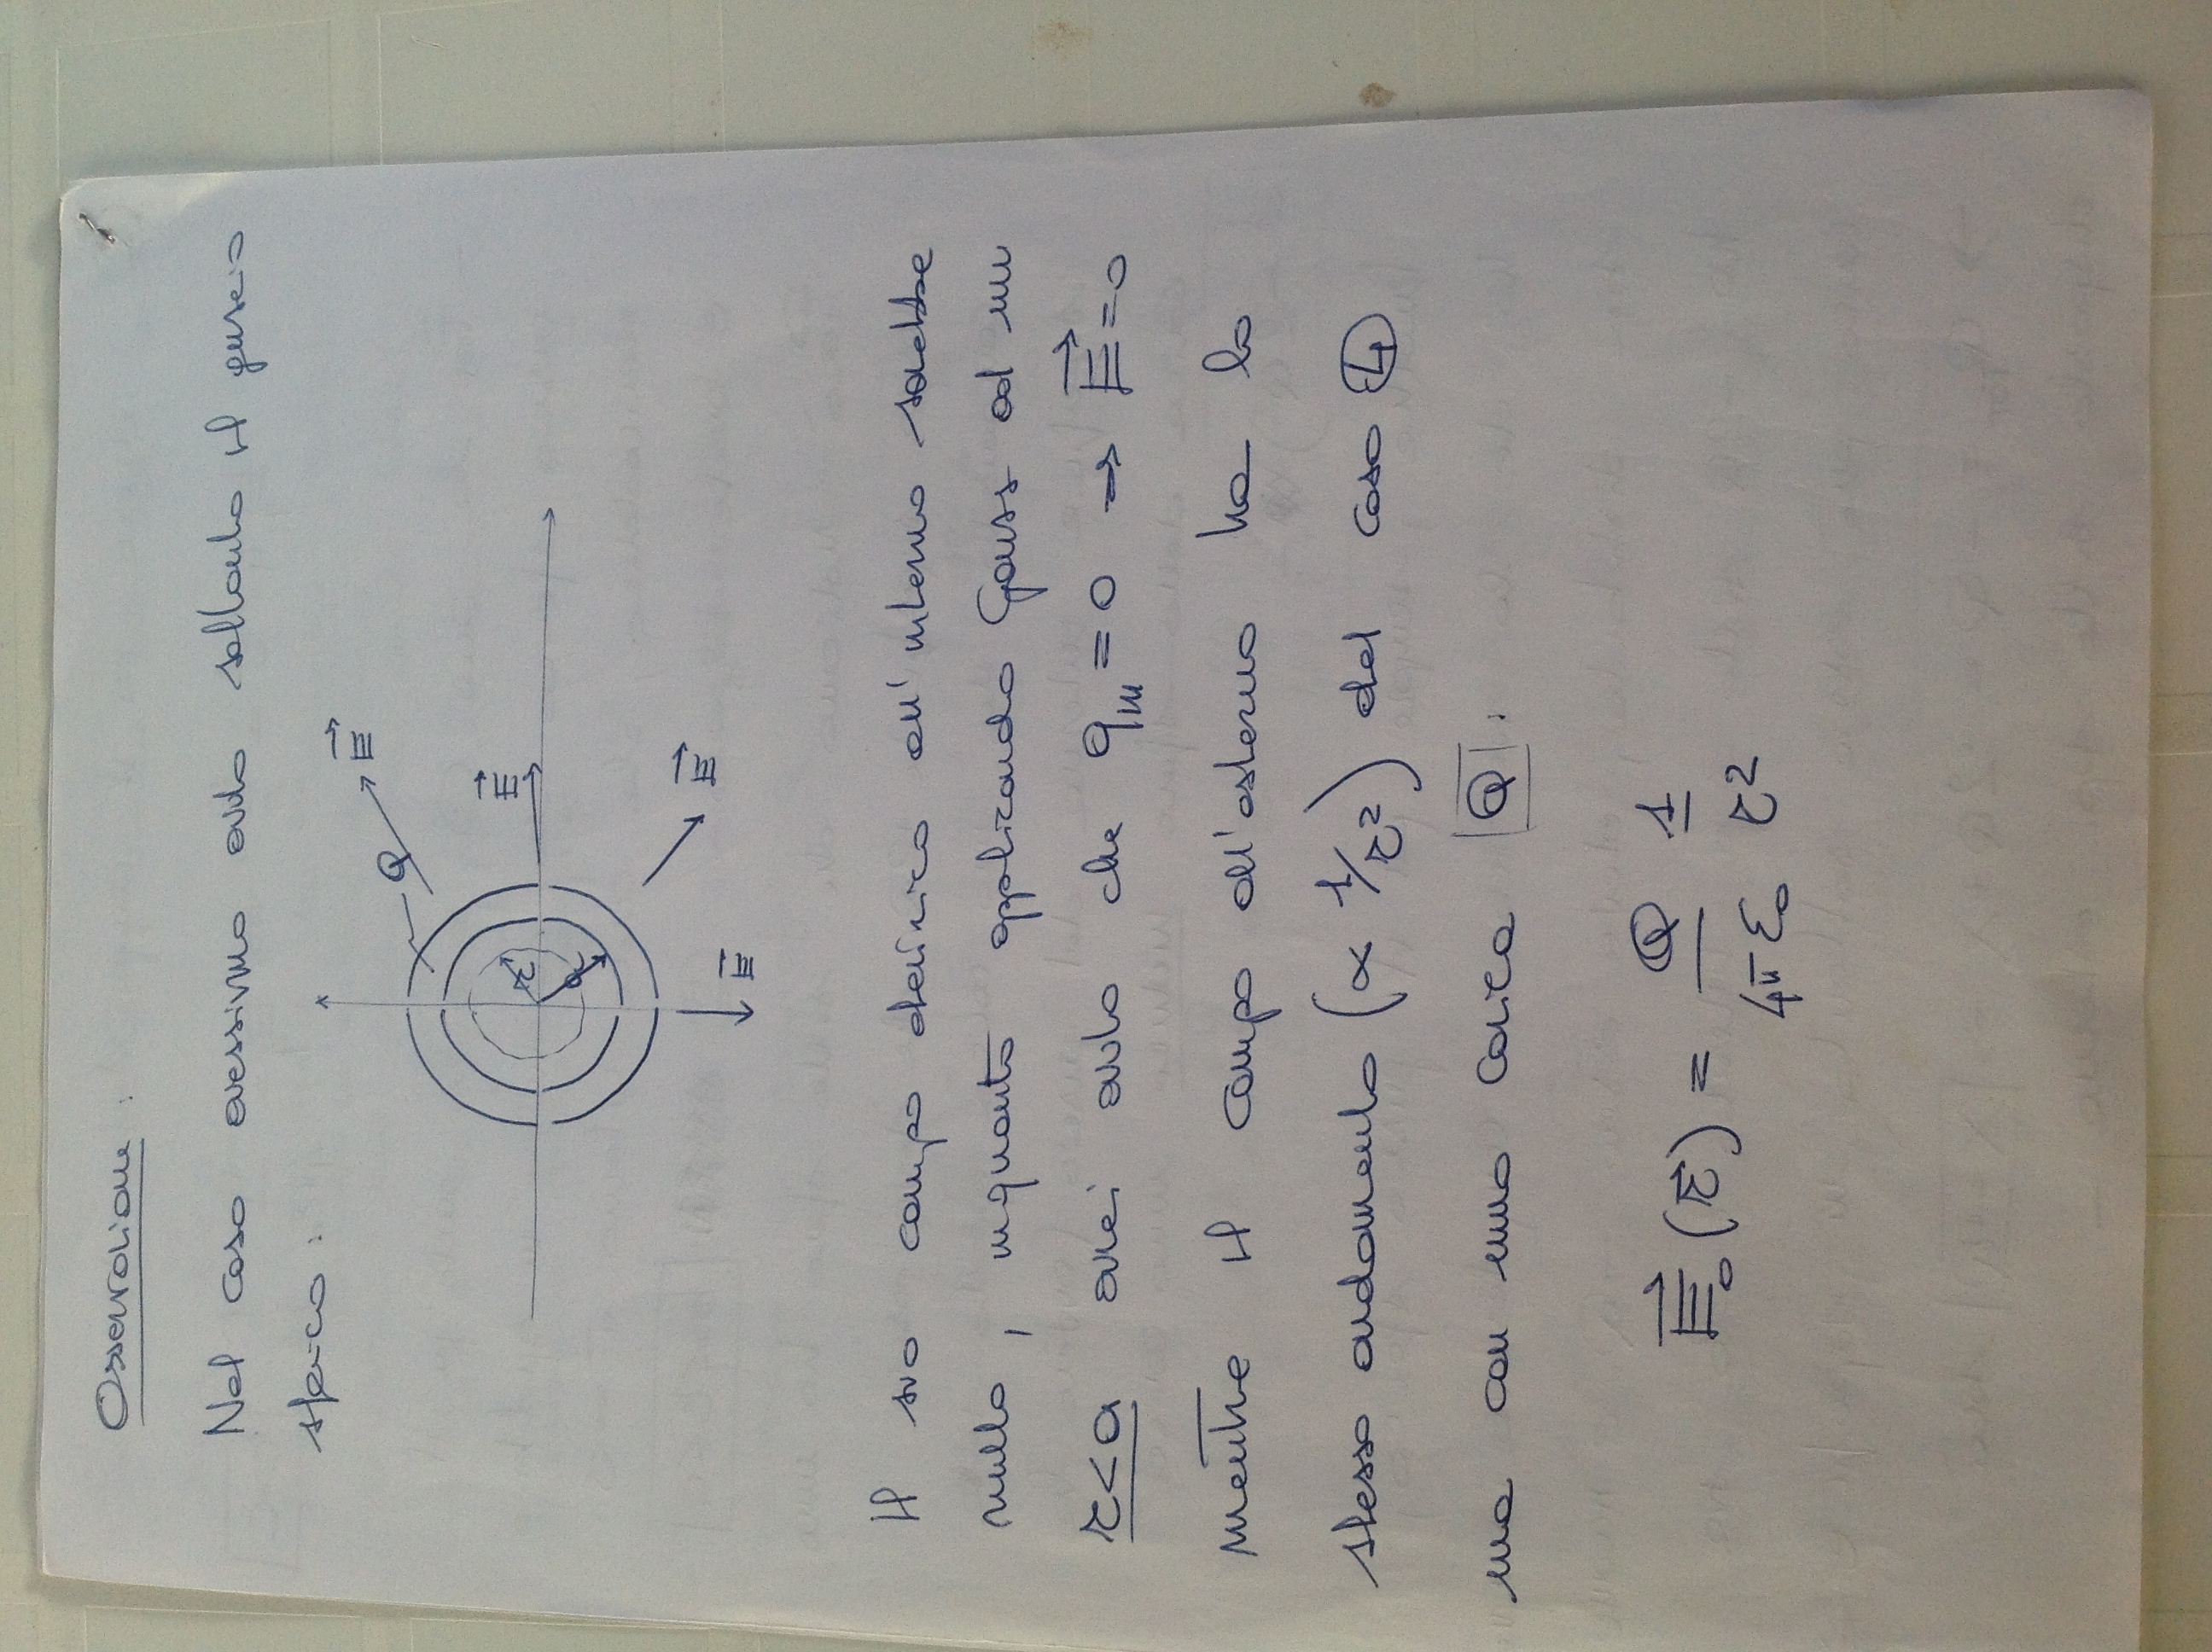 Osservazione :
Nel caso avessimo avuto soltanto il guscio
sferico :
E
Q
E
r
a
E
E
Il suo campo elettrico all'interno sarebbe
nullo , inquanto applicando Gauss ad un
r<a avrei avuto che qin = 0 => E = 0
mentre il campo all'esterno ha lo
stesso andamento (∝ 1/r²) del caso ④
ma con una carica Q :
E₀(r) = Q/4πε₀ 1/r²